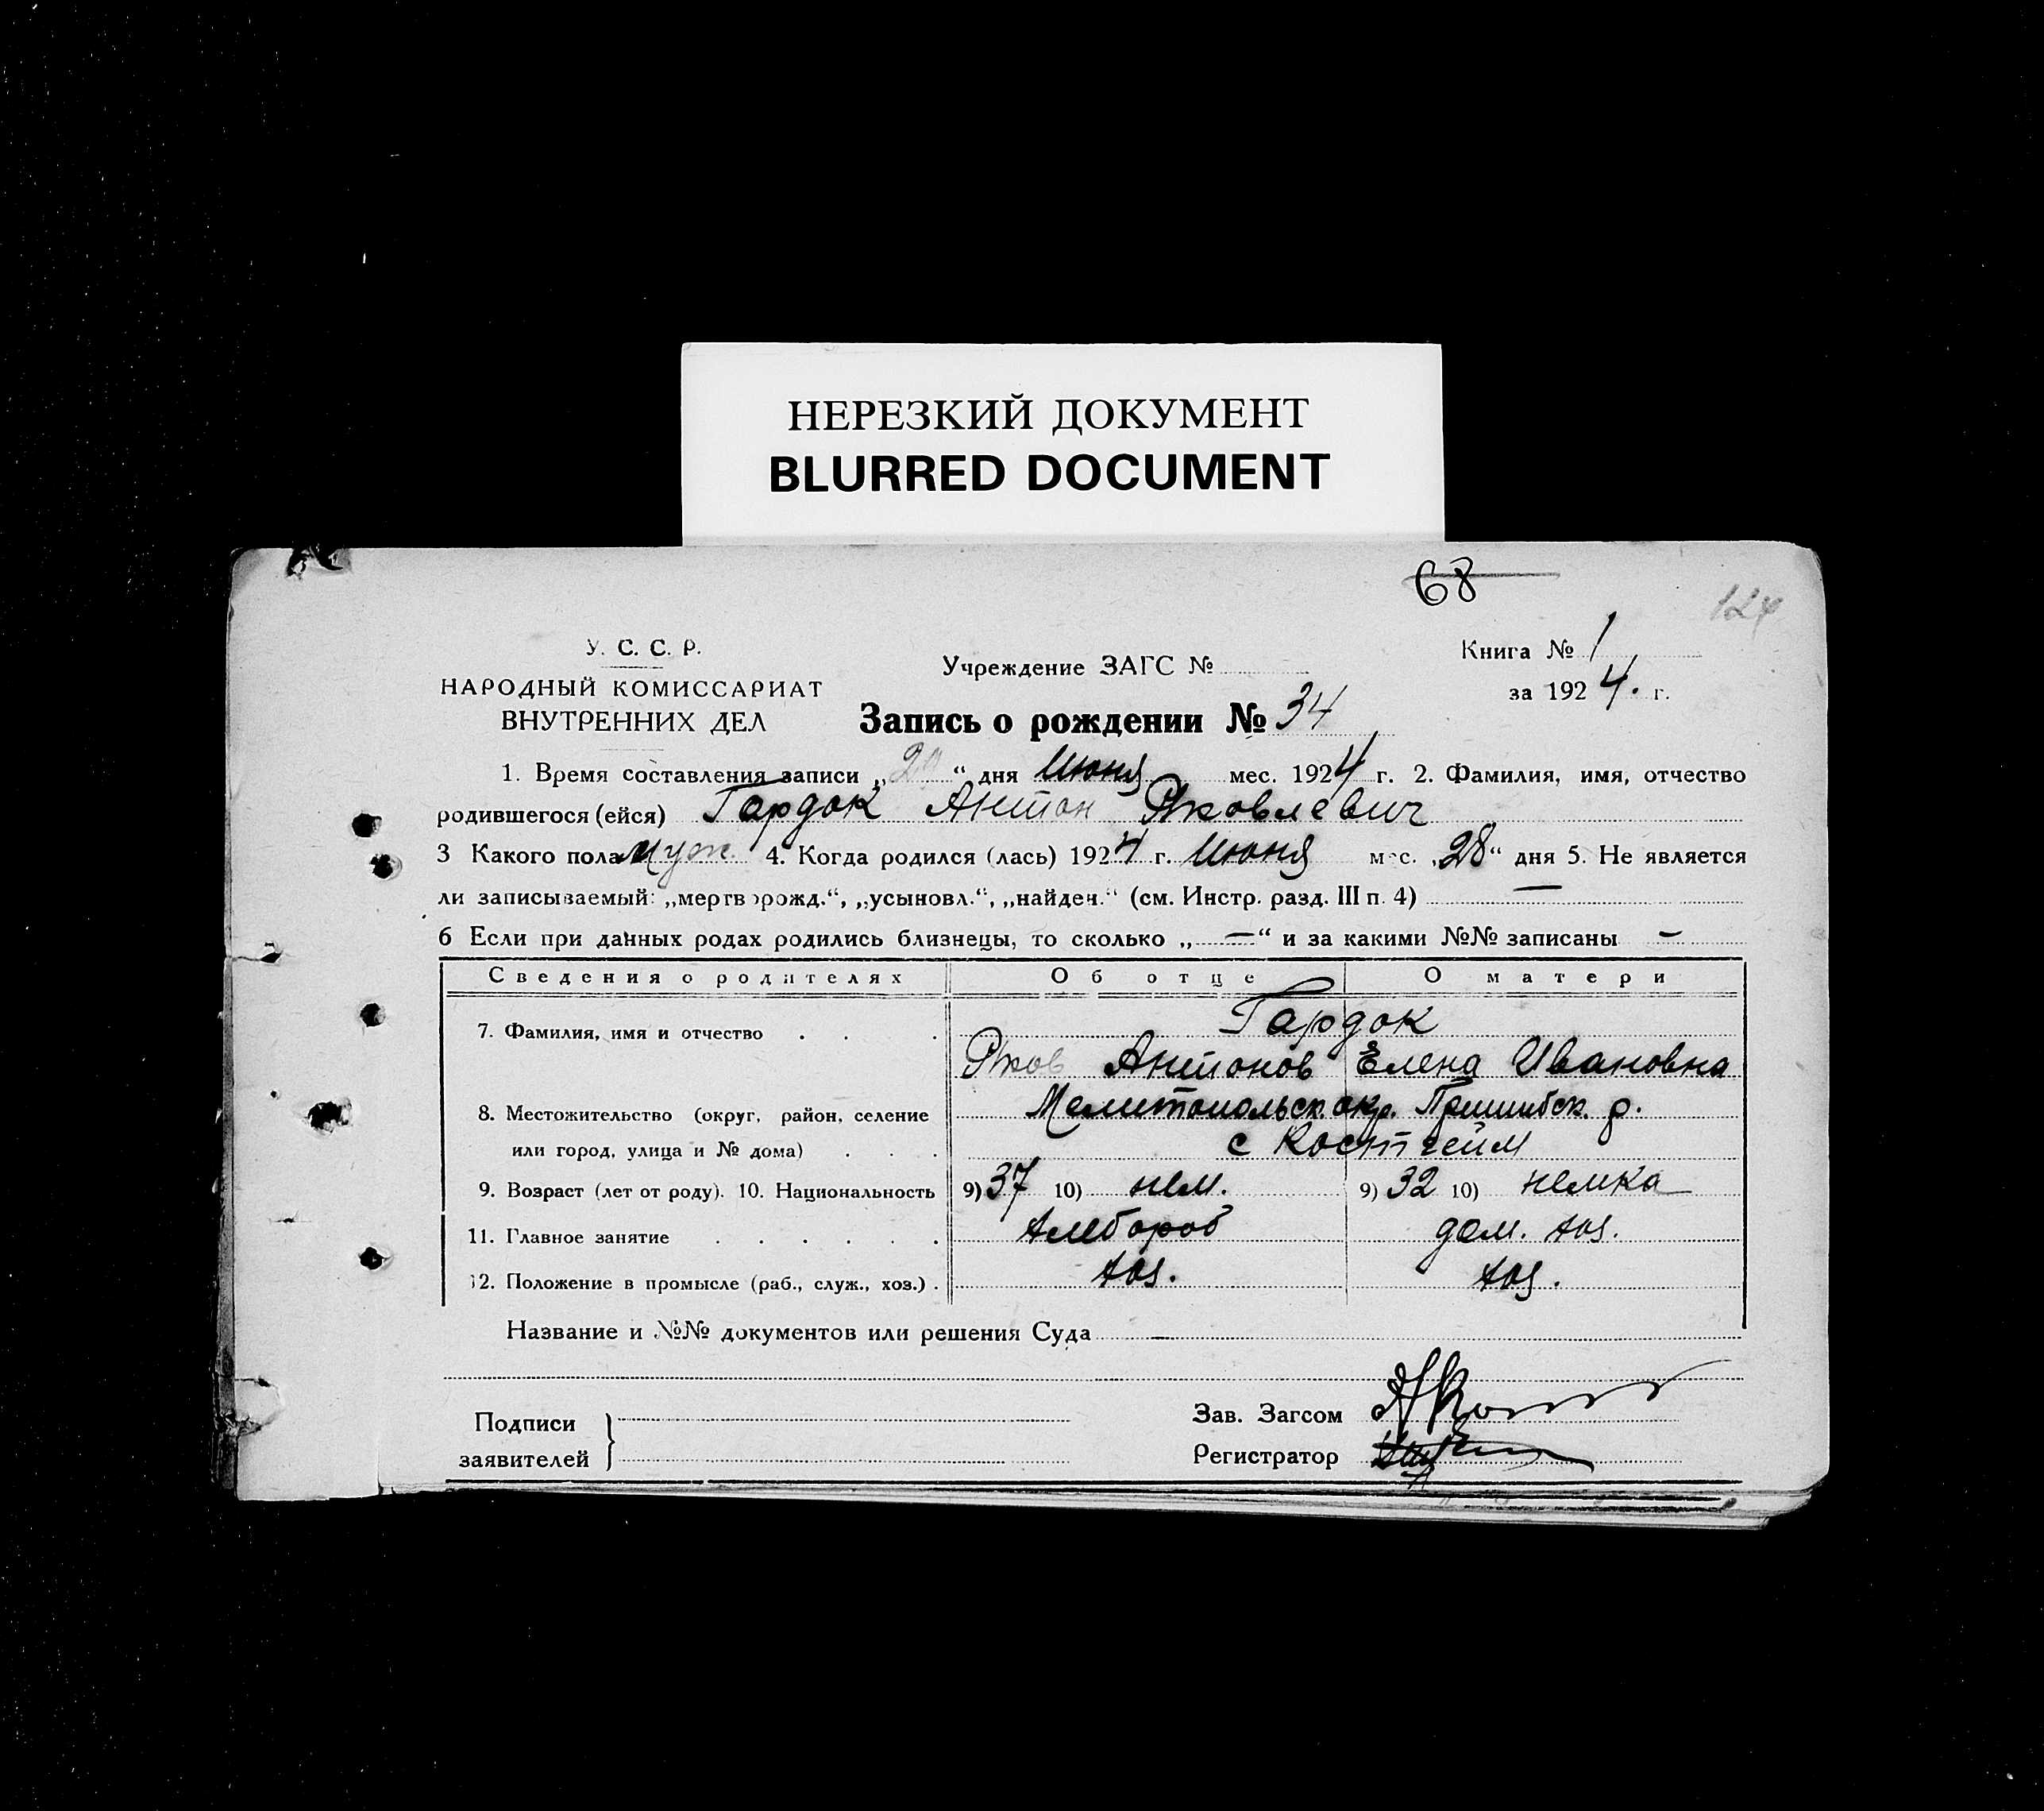 НЕРЕЗКИЙ ДОКУМЕНТ
BLURRED DOCUMENT
68
У. С. С. Р.
НАРОДНЫЙ КОМИССАРИАТ
ВНУТРЕННИХ ДЕЛ
Учреждение ЗАГС №
Книга № 1
за 1924. г.
Запись о рождении № 34
1. Время составления записи „ “ дня Июня мес. 1924 г. 2. Фамилия, имя, отчество
родившегося (ейся) Гардок Антон Яковлевич
3 Какого пола муж. 4. Когда родился (лась) 1924 г. Июня мес. „28“ дня 5. Не является
ли записываемый: „мертворожд.“, „усыновл.“, „найден.“ (см. Инстр. разд. III п. 4) —
6 Если при данных родах родились близнецы, то сколько „—“ и за какими №№ записаны —
Сведения о родителях Об отце О матери
7. Фамилия, имя и отчество . . . Гардок
Яков Антонов Елена Ивановна
8. Местожительство (округ, район, селение Мелитопольск. окр. Пришибск. р.
или город, улица и № дома) . . . с Костгейм
9. Возраст (лет от роду). 10. Национальность 9) 37 10) нем. 9) 32 10) немка
11. Главное занятие . . . . . . хлебороб дом. хоз.
12. Положение в промысле (раб., служ., хоз.) . хоз. хоз.
Название и №№ документов или решения Суда —
Подписи
заявителей
Зав. Загсом
Регистратор